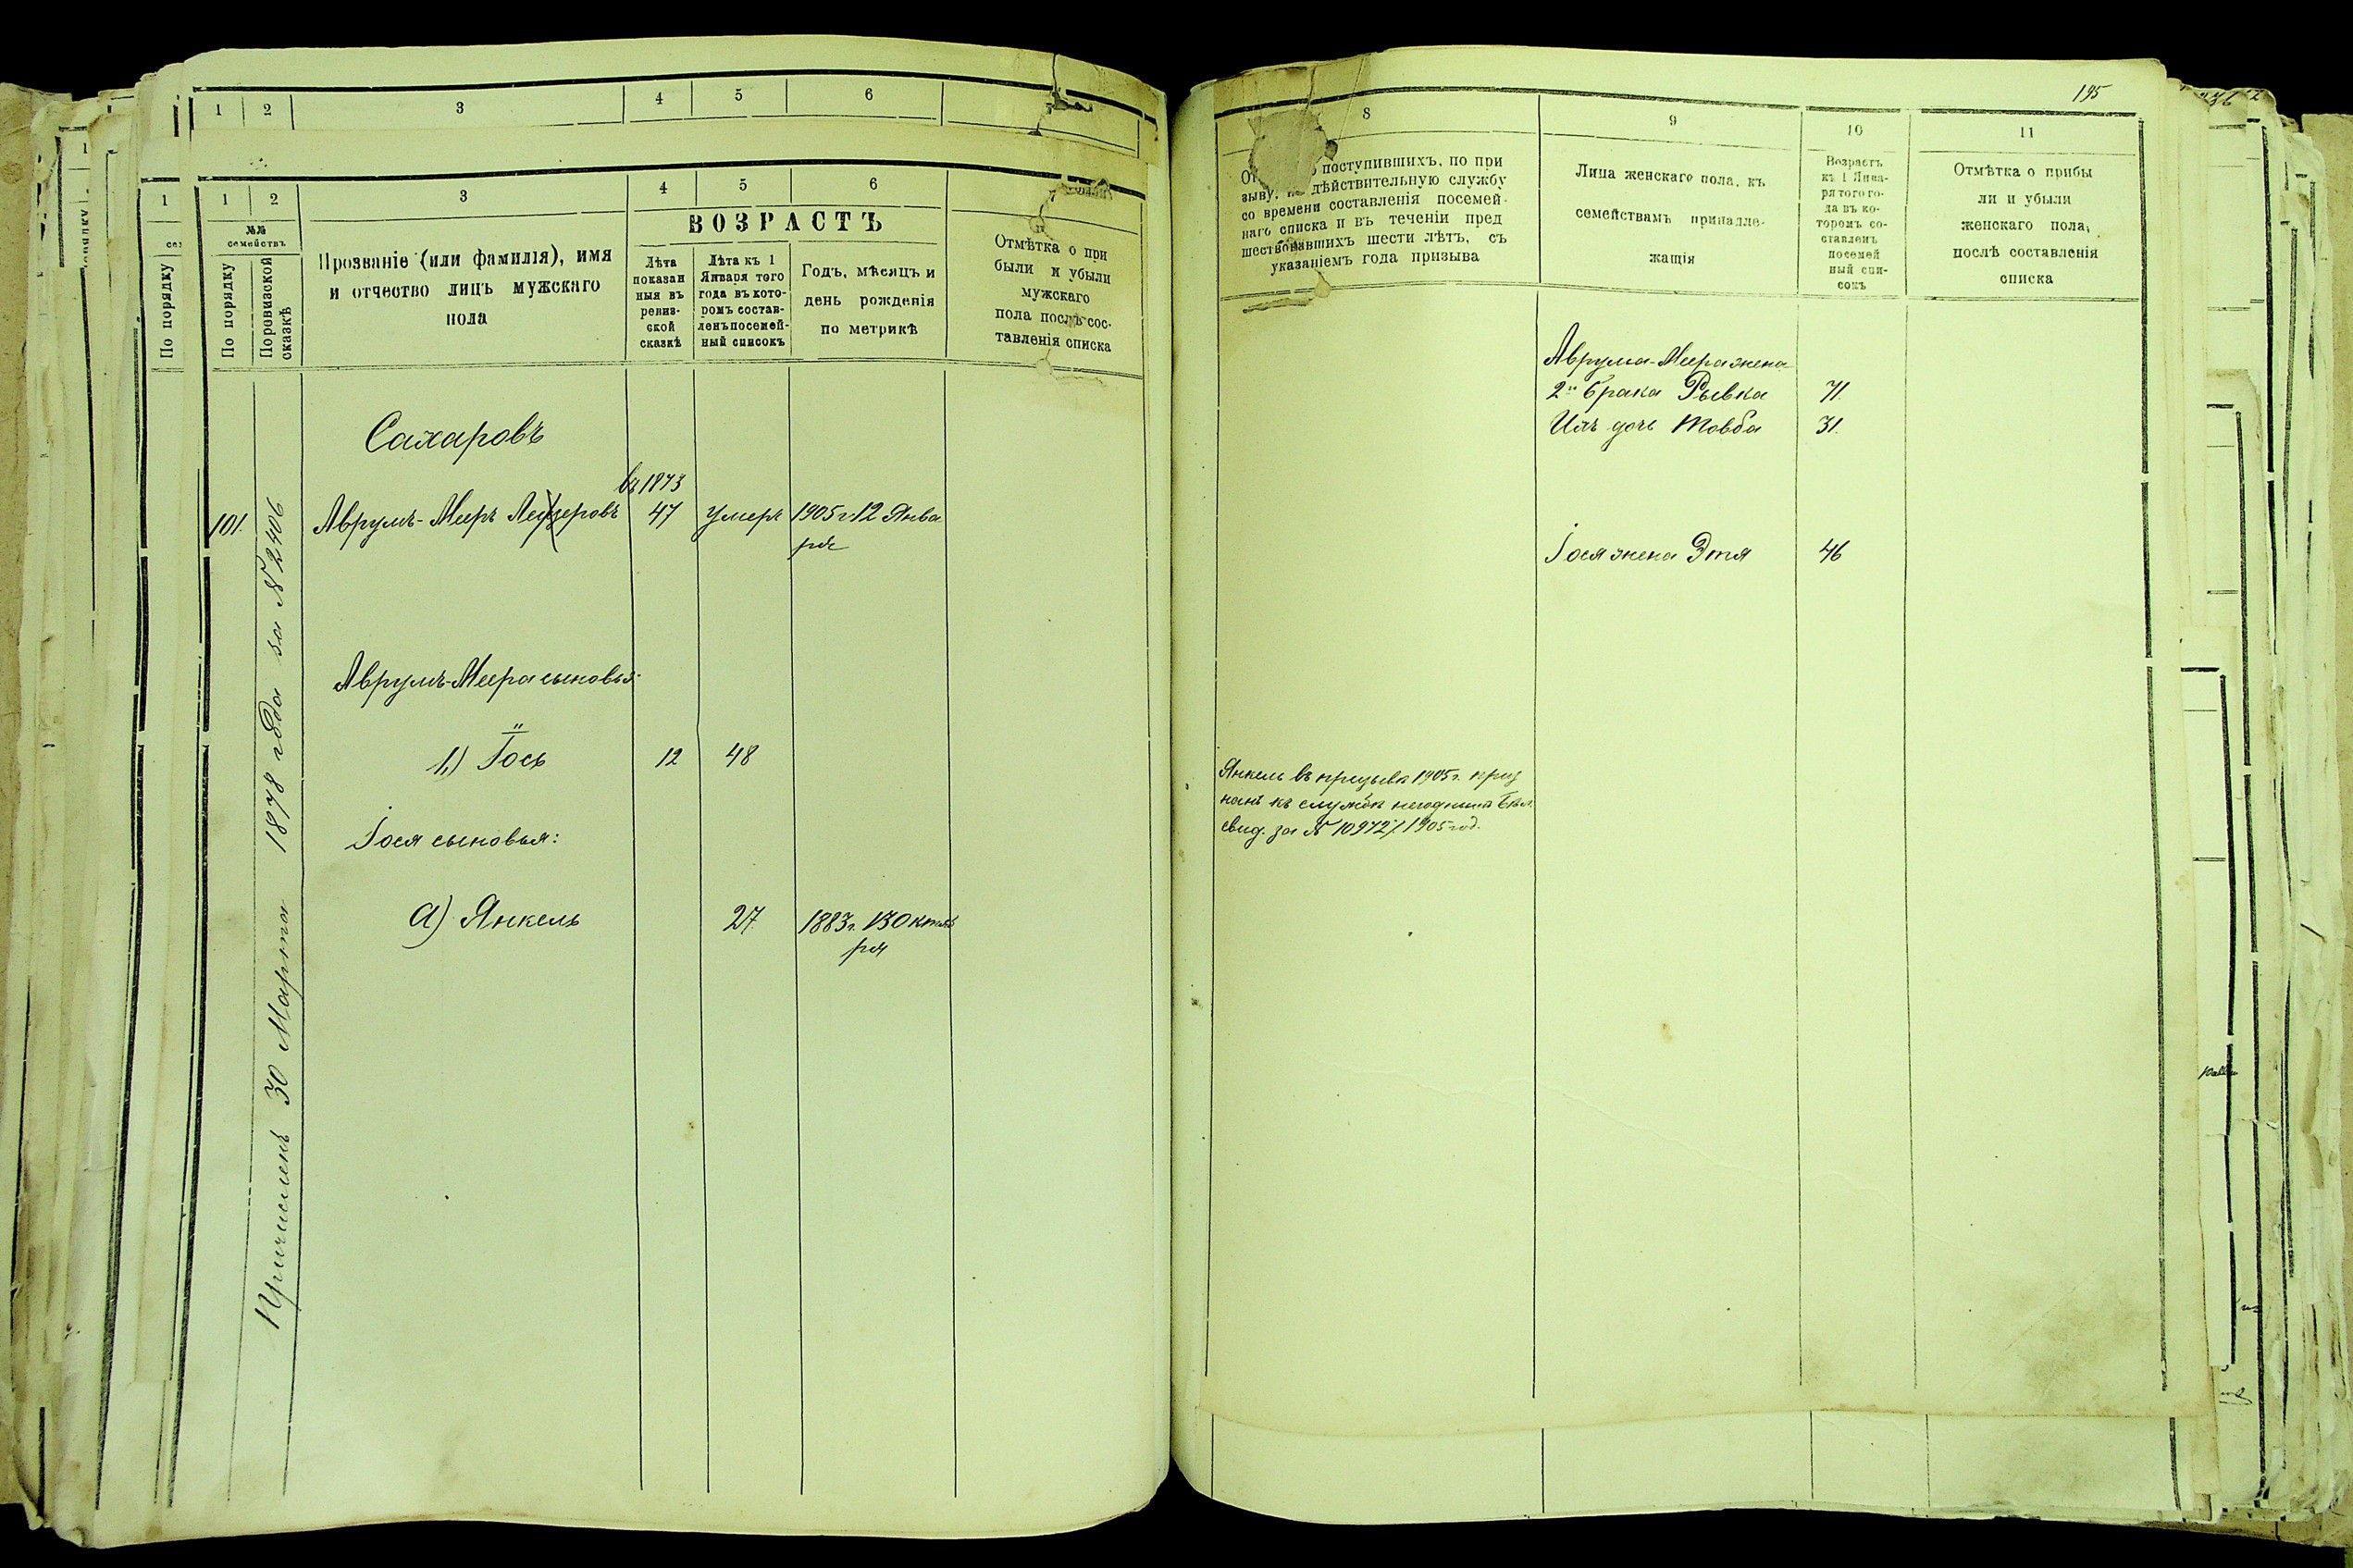 1 2 3 4 5 6
1 2 3 4 5 6
№№ семействъ
По порядку
По ревизской сказкѣ
Прозваніе (или фамилія), имя
и отчество лицъ мужскаго
пола
ВОЗРАСТЪ
Лѣта
показан
ныя въ
ревиз-
ской
сказкѣ
Лѣта къ 1
Января того
года въ кото-
ромъ состав-
ленъ посемей-
ный списокъ
Годъ, мѣсяцъ и
день рожденія
по метрикѣ
Отмѣтка о при
были и убыли
мужскаго
пола послѣ сос-
тавленія списка
Сахаровъ
въ 1873
101. Аврумъ-Мееръ 47 умеръ 1905 г 12 Янва
ря
Аврумъ-Меера сыновья
1,) Іось 12 48
Іося сыновья:
а) Янкель 27 1883 г. 13 Октяб
ря
Причисленъ 30 Марта 1878 года за № 2406
195
8 9 10 11
поступившихъ, по при
зыву, на дѣйствительную службу
со времени составленія посемей-
наго списка и въ теченіи пред
шествовавшихъ шести лѣтъ, съ
указаніемъ года призыва
Лица женскаго пола, къ
семействамъ принадле-
жащія
Возрастъ
къ 1 Янва-
ря того го-
да въ ко-
торомъ со-
ставленъ
посемей
ный спи-
сокъ
Отмѣтка о прибы
ли и убыли
женскаго пола,
послѣ составленія
списка
Аврума-Меера жена
2го брака Рывка 71
Ихъ дочь Товба 31.
Іося жена Этя 46
Янкель въ призывѣ 1905 г. приз
нанъ къ службѣ негоднымъ
свид. за № 10972/1905 год.